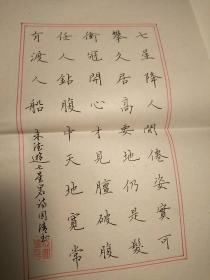 七星降人間僊姿實可
攀久居高要地仍是髮
衝冠開心才見膽破腹
任人鑽腹中天地寬常
有渡人船
朱德遊七星岩詩國